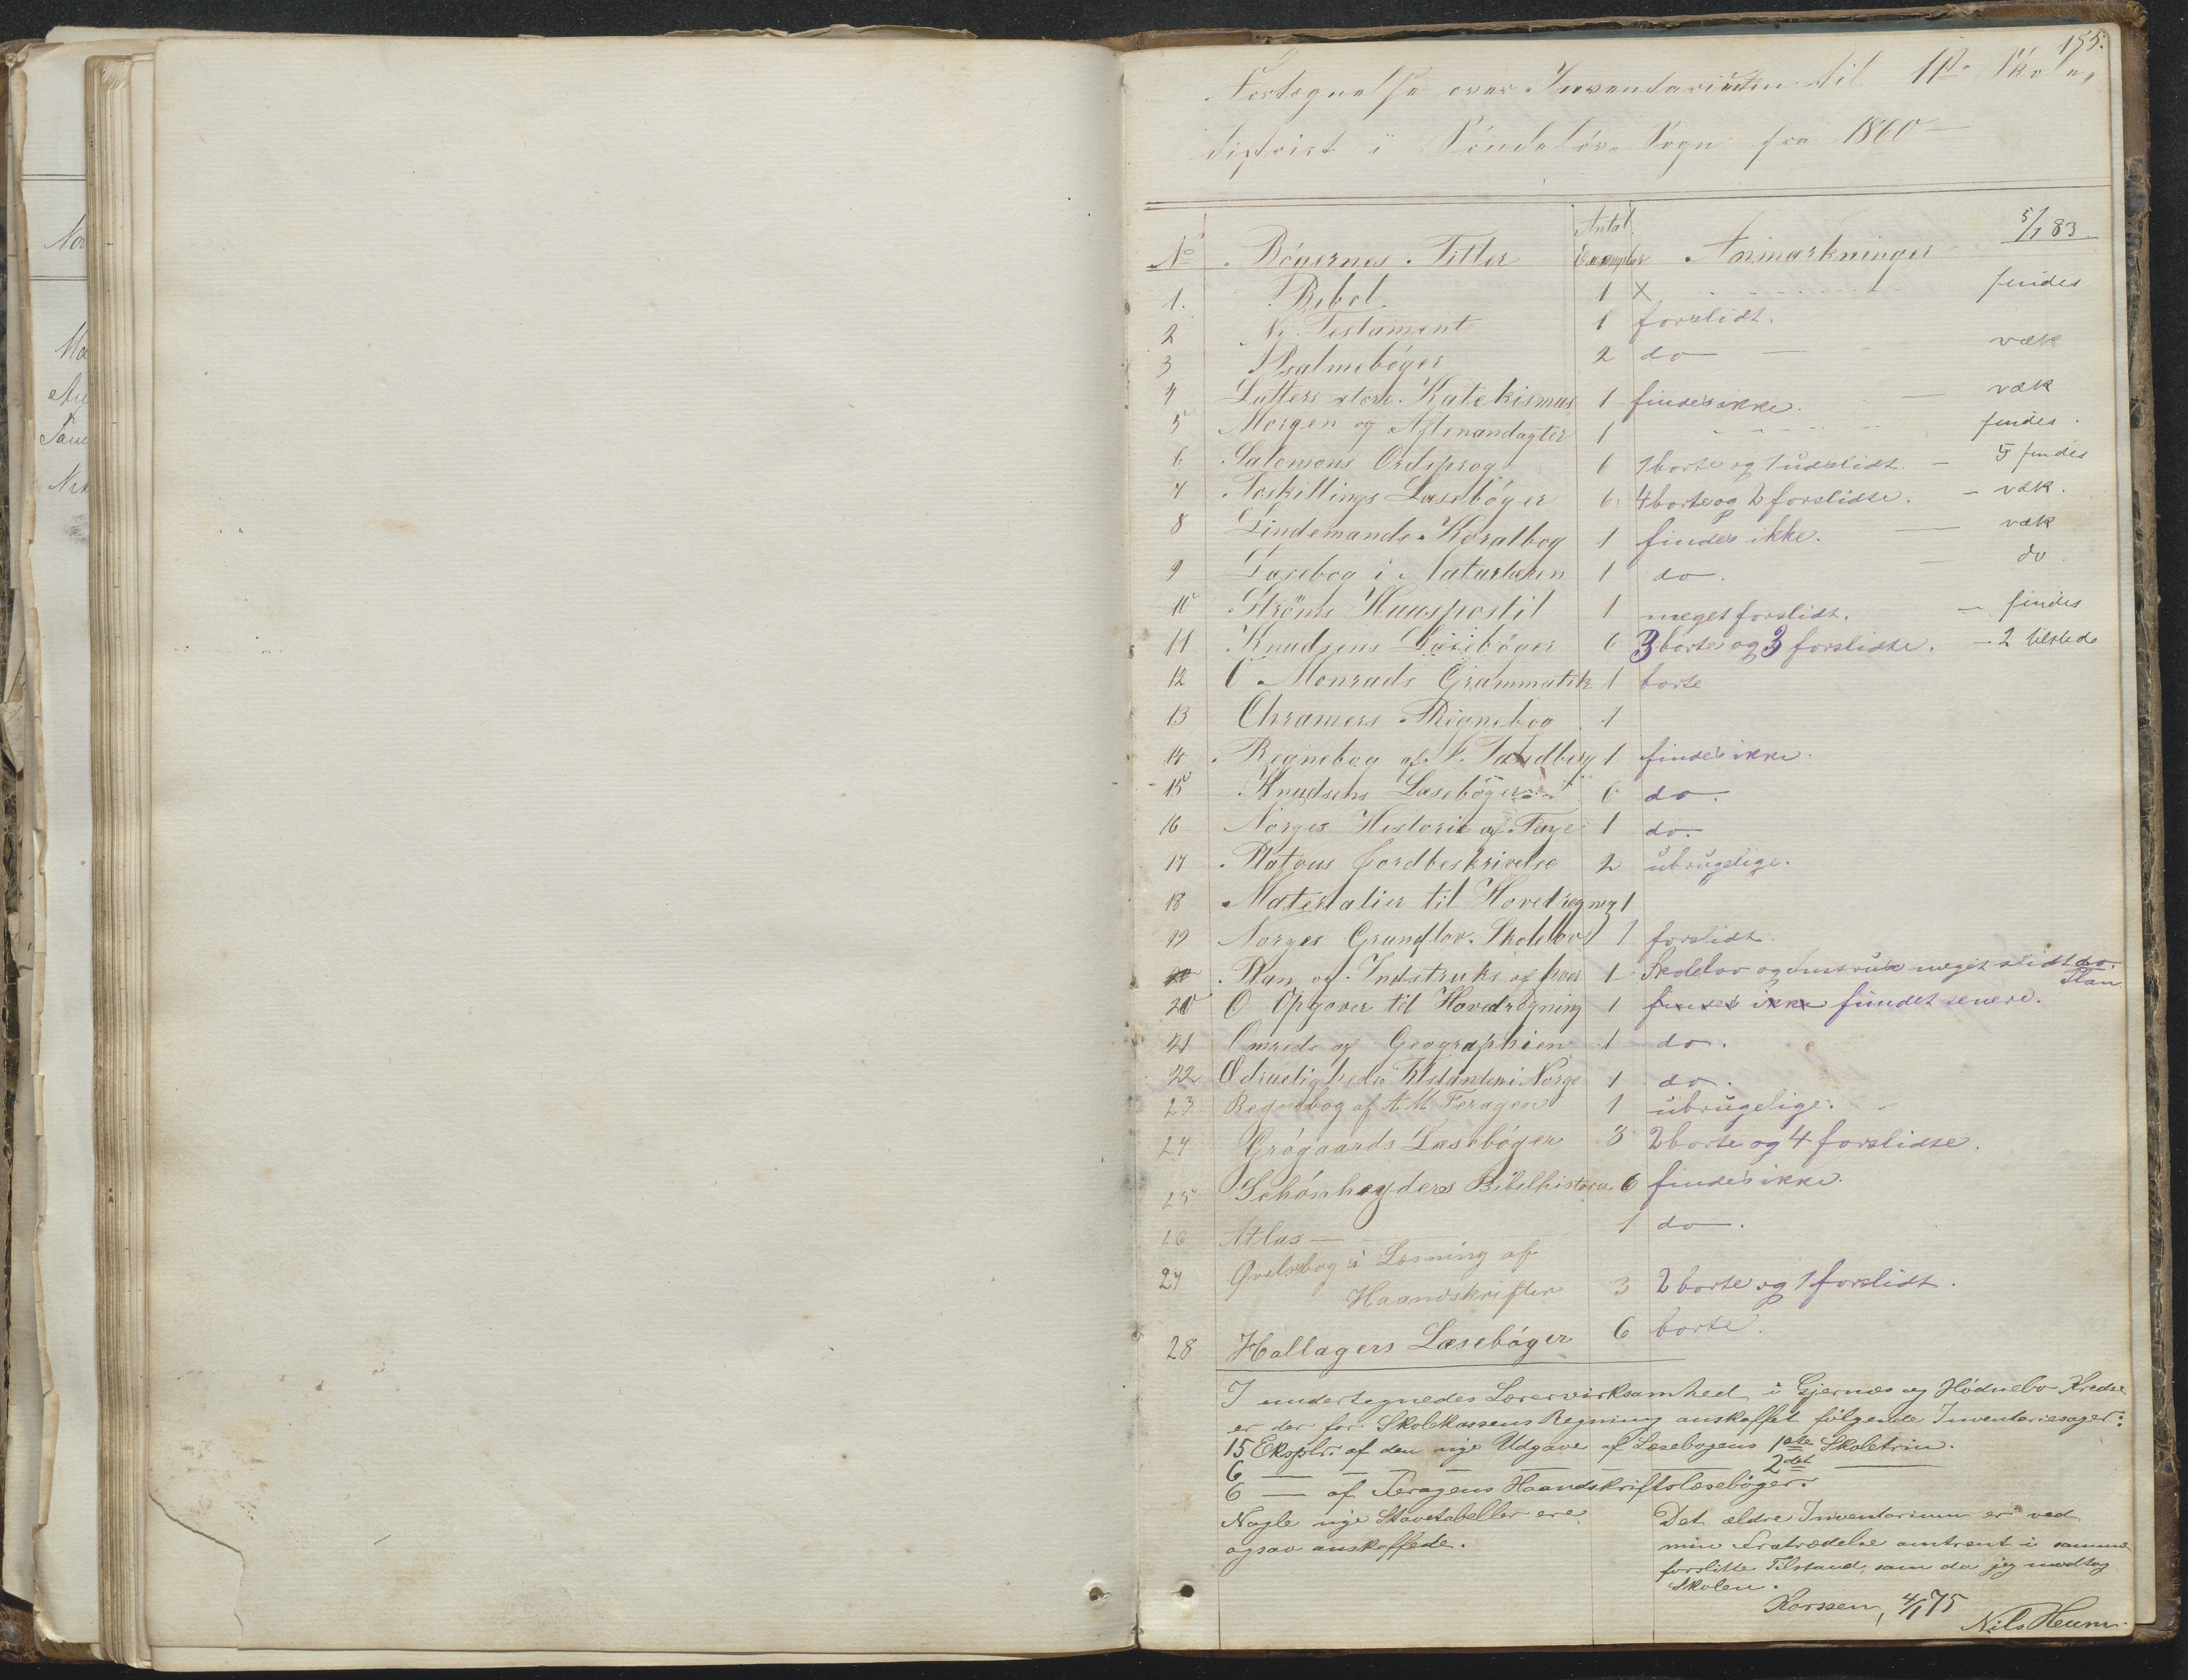 155.
Fortegnelse over Inventariüm til 1ste Skole-
district i Söndelövs Sogn fra 1860
No Bögernes Titler Antal Exempler Anmærkninger 5/1 83
1. Bibel. 1 X findes
2 N. Testament 1 forslidt.
3 Psalmebøger 2 do — væk
4 Luthers store Katekismus 1 findes ikke. — væk
5 Morgen og Aftenandagter 1 findes.
6 Salomons Ordsprog 6 1 borte og 1 udslidt. — 5 findes
7 Toskillings Læsebøger 6 4 borte og 2 forslidte. — væk.
8 Lindemands Koralbog 1 findes ikke. — væk
9 Læsebog i Naturlæren 1 do. — do.
10 Strøms Huuspostil 1 meget forslidt. — findes
11 Knudsens Læsebøger 6 3 borte og 3 forslidte. — 2 tilstede
12 Monrads Grammatik 1 borte
13 Chramers Regnebog 1
14 Regnebog af Sandberg 1 findes ikke.
15 Knudsens Læsebøger 6 do.
16 Norges Historie af Faye 1 do.
17 Platous Jordbeskrivelse 2 ubrugelige.
18 Materialier til Hovedregneg 1
19 Norges Grundlov. Skolelov 1 forslidt.
20 Plan og Indstruks af 1 Skolelov og Instrux meget slidt do. Plan
20 Opgaver til Hovedregning 1 findes ikke fundet senere.
21 Omrids af Geographien 1 do.
22 Ædrueligheds Tilstanden i Norge 1 do.
23 Regnebog af A. M. Feragen 1 ubrugelige.
24 Grøgaards Læsebøger 8 2 borte og 4 forslidte.
25 Schønheyders Bibelhistorie 6 findes ikke.
26 Atlas — 1 do.
27 Øvelsebog i Læsning af
Haandskrifter 3 2 borte og 1 forslidt.
28 Hallagers Læsebøger 6 borte.
I undertegnedes Lærervirksamhed i Gjernæs og Hødnebø Kredse
er der for Skolekassens Regning anskaffet følgende Inventariesager:
15 Eksplr. af den nye Udgave af Læsebogens 1ste Skoletrin.
6 — — — — — — 2det —
6 — af Feragens Haandskriftslæsebøger.
Nogle nye Stavetabeller ere
ogsaa anskaffede.
Det ældre Inventarium er ved
min Fratrædelse omtrent i samme
forslitte Tilstand, som da jeg modtog
Skolen.
Korssen, 4/1 75
Nils Heum.